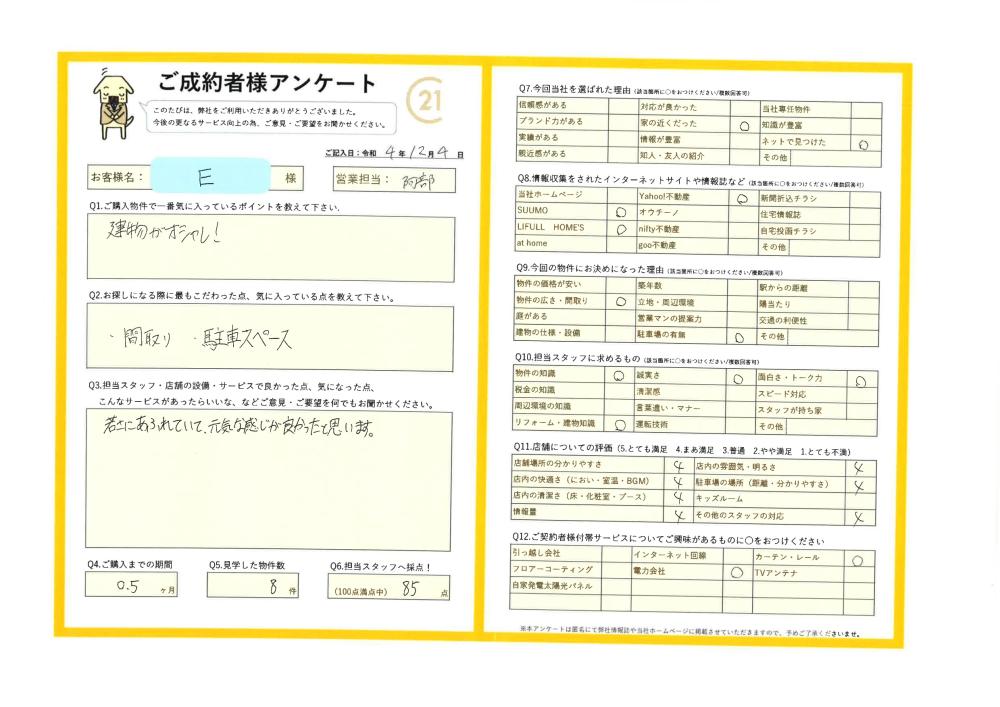 ご成約者様アンケート
このたびは、弊社をご利用いただきありがとうございました。
今後の更なるサービス向上の為、ご意見・ご要望をお聞かせください。
21
ご記入日：令和 4 年 12 月 4 日
お客様名： E 様
営業担当： 阿部
Q1.ご購入物件で一番気に入っているポイントを教えて下さい.
建物がオシャレ!
Q2.お探しになる際に最もこだわった点、気に入っている点を教えて下さい。
・間取り ・駐車スペース
Q3.担当スタッフ・店舗の設備・サービスで良かった点、気になった点、
こんなサービスがあったらいいな、などご意見・ご要望を何でもお聞かせください。
若さにあふれていて、元気な感じが良かったと思います。
Q4.ご購入までの期間
0.5 ヶ月
Q5.見学した物件数
8 件
Q6.担当スタッフへ採点！
(100点満点中) 85 点
Q7.今回当社を選ばれた理由（該当箇所に〇をおつけください/複数回答可）
信頼感がある 対応が良かった 当社専任物件
ブランド力がある 家の近くだった ○ 知識が豊富
実績がある 情報が豊富 ネットで見つけた ○
親近感がある 知人・友人の紹介 その他
Q8.情報収集をされたインターネットサイトや情報誌など（該当箇所に〇をおつけください/複数回答可）
当社ホームページ Yahoo!不動産 ○ 新聞折込チラシ
SUUMO ○ オウチーノ 住宅情報誌
LIFULL HOME'S ○ nifty不動産 自宅投函チラシ
at home goo不動産 その他
Q9.今回の物件にお決めになった理由（該当箇所に〇をおつけください/複数回答可）
物件の価格が安い 築年数 駅からの距離
物件の広さ・間取り ○ 立地・周辺環境 陽当たり
庭がある 営業マンの提案力 交通の利便性
建物の仕様・設備 駐車場の有無 ○ その他
Q10.担当スタッフに求めるもの（該当箇所に〇をおつけください/複数回答可）
物件の知識 ○ 誠実さ ○ 面白さ・トーク力 ○
税金の知識 清潔感 スピード対応
周辺環境の知識 言葉遣い・マナー スタッフが持ち家
リフォーム・建物知識 ○ 運転技術 その他
Q11.店舗についての評価（5.とても満足 4.まあ満足 3.普通 2.やや満足 1.とても不満）
店舗場所の分かりやすさ 4 店内の雰囲気・明るさ 4
店内の快適さ（におい・室温・BGM） 4 駐車場の場所（距離・分かりやすさ） 4
店内の清潔さ（床・化粧室・ブース） 4 キッズルーム
情報量 4 その他のスタッフの対応 4
Q12.ご契約者様付帯サービスについてご興味があるものに〇をおつけください
引っ越し会社 インターネット回線 カーテン・レール ○
フロアーコーティング 電力会社 ○ TVアンテナ
自家発電太陽光パネル
※本アンケートは匿名にて弊社情報誌や当社ホームページに掲載させていただきますので、予めご了承くださいませ。